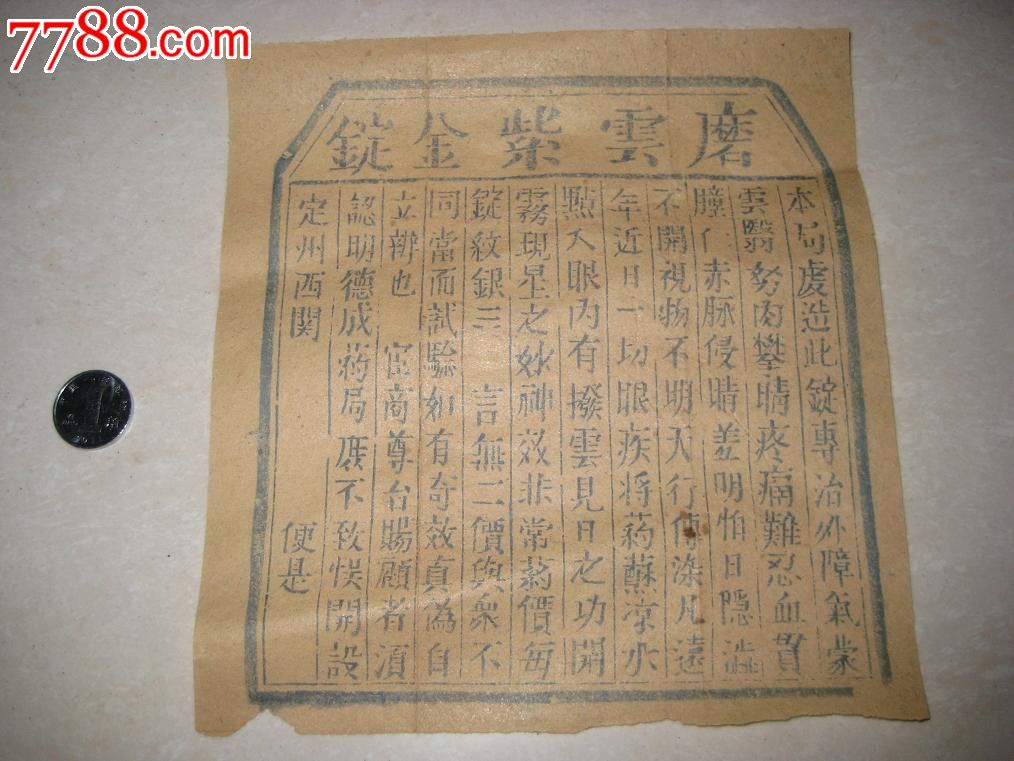 7788.com
磨雲紫金錠
本局虔造此錠專治外障氣蒙
雲翳努肉攀睛疼痛難忍血貫
瞳仁赤脉侵睛羞明怕日隱澁
不開視物不明天行傳染凡遠
年近日一切眼疾將葯蘸凉水
點入眼內有撥雲見日之功開
霧現星之妙神效非常葯價每
錠紋銀三 言無二價與衆不
同當面試驗如有奇效真偽自
立辨也 官商尊台賜顧者湏
認明德成葯局庻不致悮開設
定州西関 便是